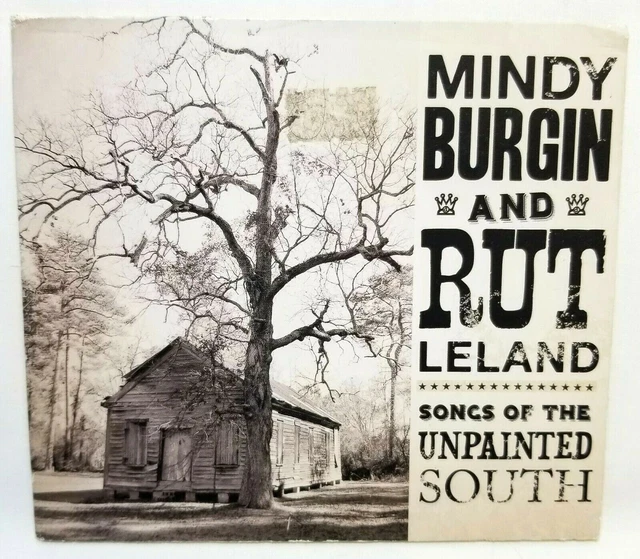 MINDY
BURGIN
AND
RUT
LELAND
SONGS OF THE
UNPAINTED
SOUTH